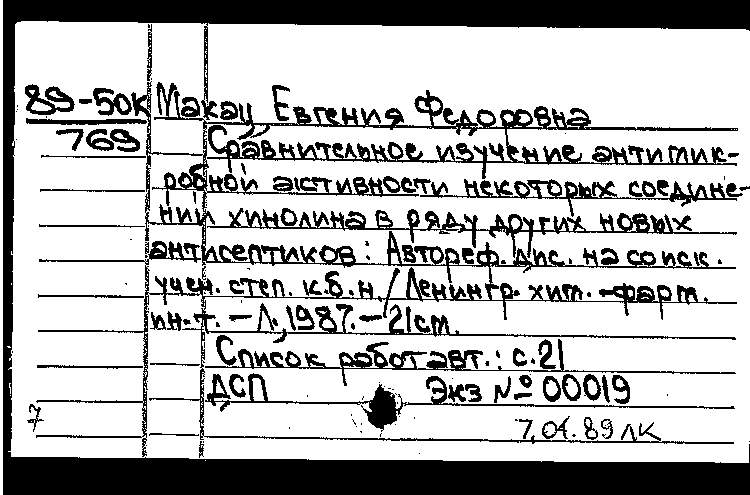 89-50К Макац Евгения Федоровна
769 Сравнительное изучение антимик-
робной активности некоторых соедине-
ний хинолина в ряду других новых
антисептиков: Автореф. дис. на соиск.
учен. степ. к.б.н. / Ленингр. хим.-фарм.
ин-т. - Л., 1987. - 21 см.
Список работ авт.: с.21
ДСП Экз № 00019
7.04.89 ЛК
7